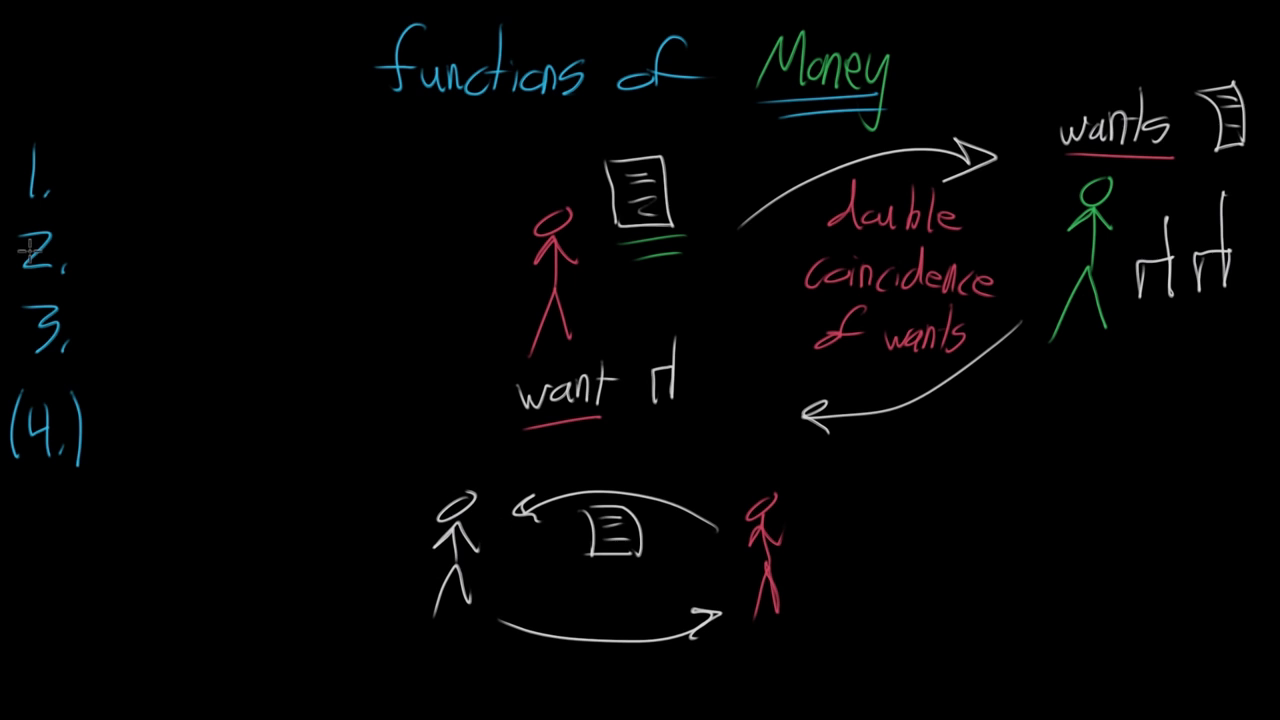 functions of Money
wants
1.
2.
3.
(4.)
double
coincidence
of wants
want